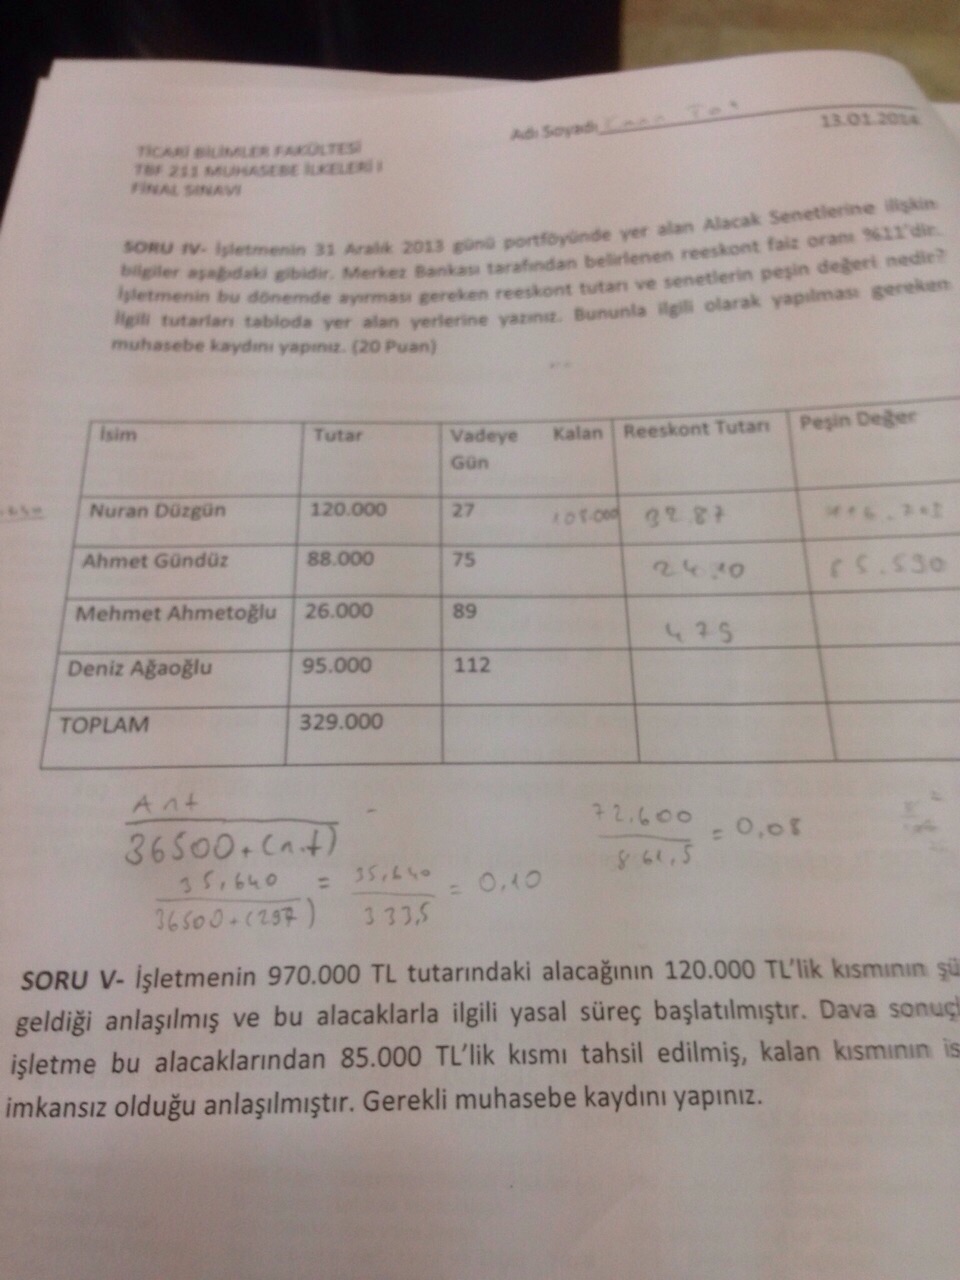 Adı Soyadı
13.01.2014
TİCARİ BİLİMLER FAKÜLTESİ
TBF 211 MUHASEBE İLKELERİ I
FİNAL SINAVI
SORU IV- İşletmenin 31 Aralık 2013 günü portföyünde yer alan Alacak Senetlerine ilişkin
bilgiler aşağıdaki gibidir. Merkez Bankası tarafından belirlenen reeskont faiz oranı %11'dir.
İşletmenin bu dönemde ayırması gereken reeskont tutarı ve senetlerin peşin değeri nedir?
İlgili tutarları tabloda yer alan yerlerine yazınız. Bununla ilgili olarak yapılması gereken
muhasebe kaydını yapınız. (20 Puan)
İsim Tutar Vadeye Kalan Gün Reeskont Tutarı Peşin Değer
Nuran Düzgün 120.000 27 108.000 3287
Ahmet Gündüz 88.000 75 24.10 85.590
Mehmet Ahmetoğlu 26.000 89 475
Deniz Ağaoğlu 95.000 112
TOPLAM 329.000
Ant
36500+(n.t)
72.600
861,5
= 0,08
35,640
36500+(297)
=
35,640
333,5
= 0,10
SORU V- İşletmenin 970.000 TL tutarındaki alacağının 120.000 TL'lik kısmının şü
geldiği anlaşılmış ve bu alacaklarla ilgili yasal süreç başlatılmıştır. Dava sonuç
işletme bu alacaklarından 85.000 TL'lik kısmı tahsil edilmiş, kalan kısmının is
imkansız olduğu anlaşılmıştır. Gerekli muhasebe kaydını yapınız.